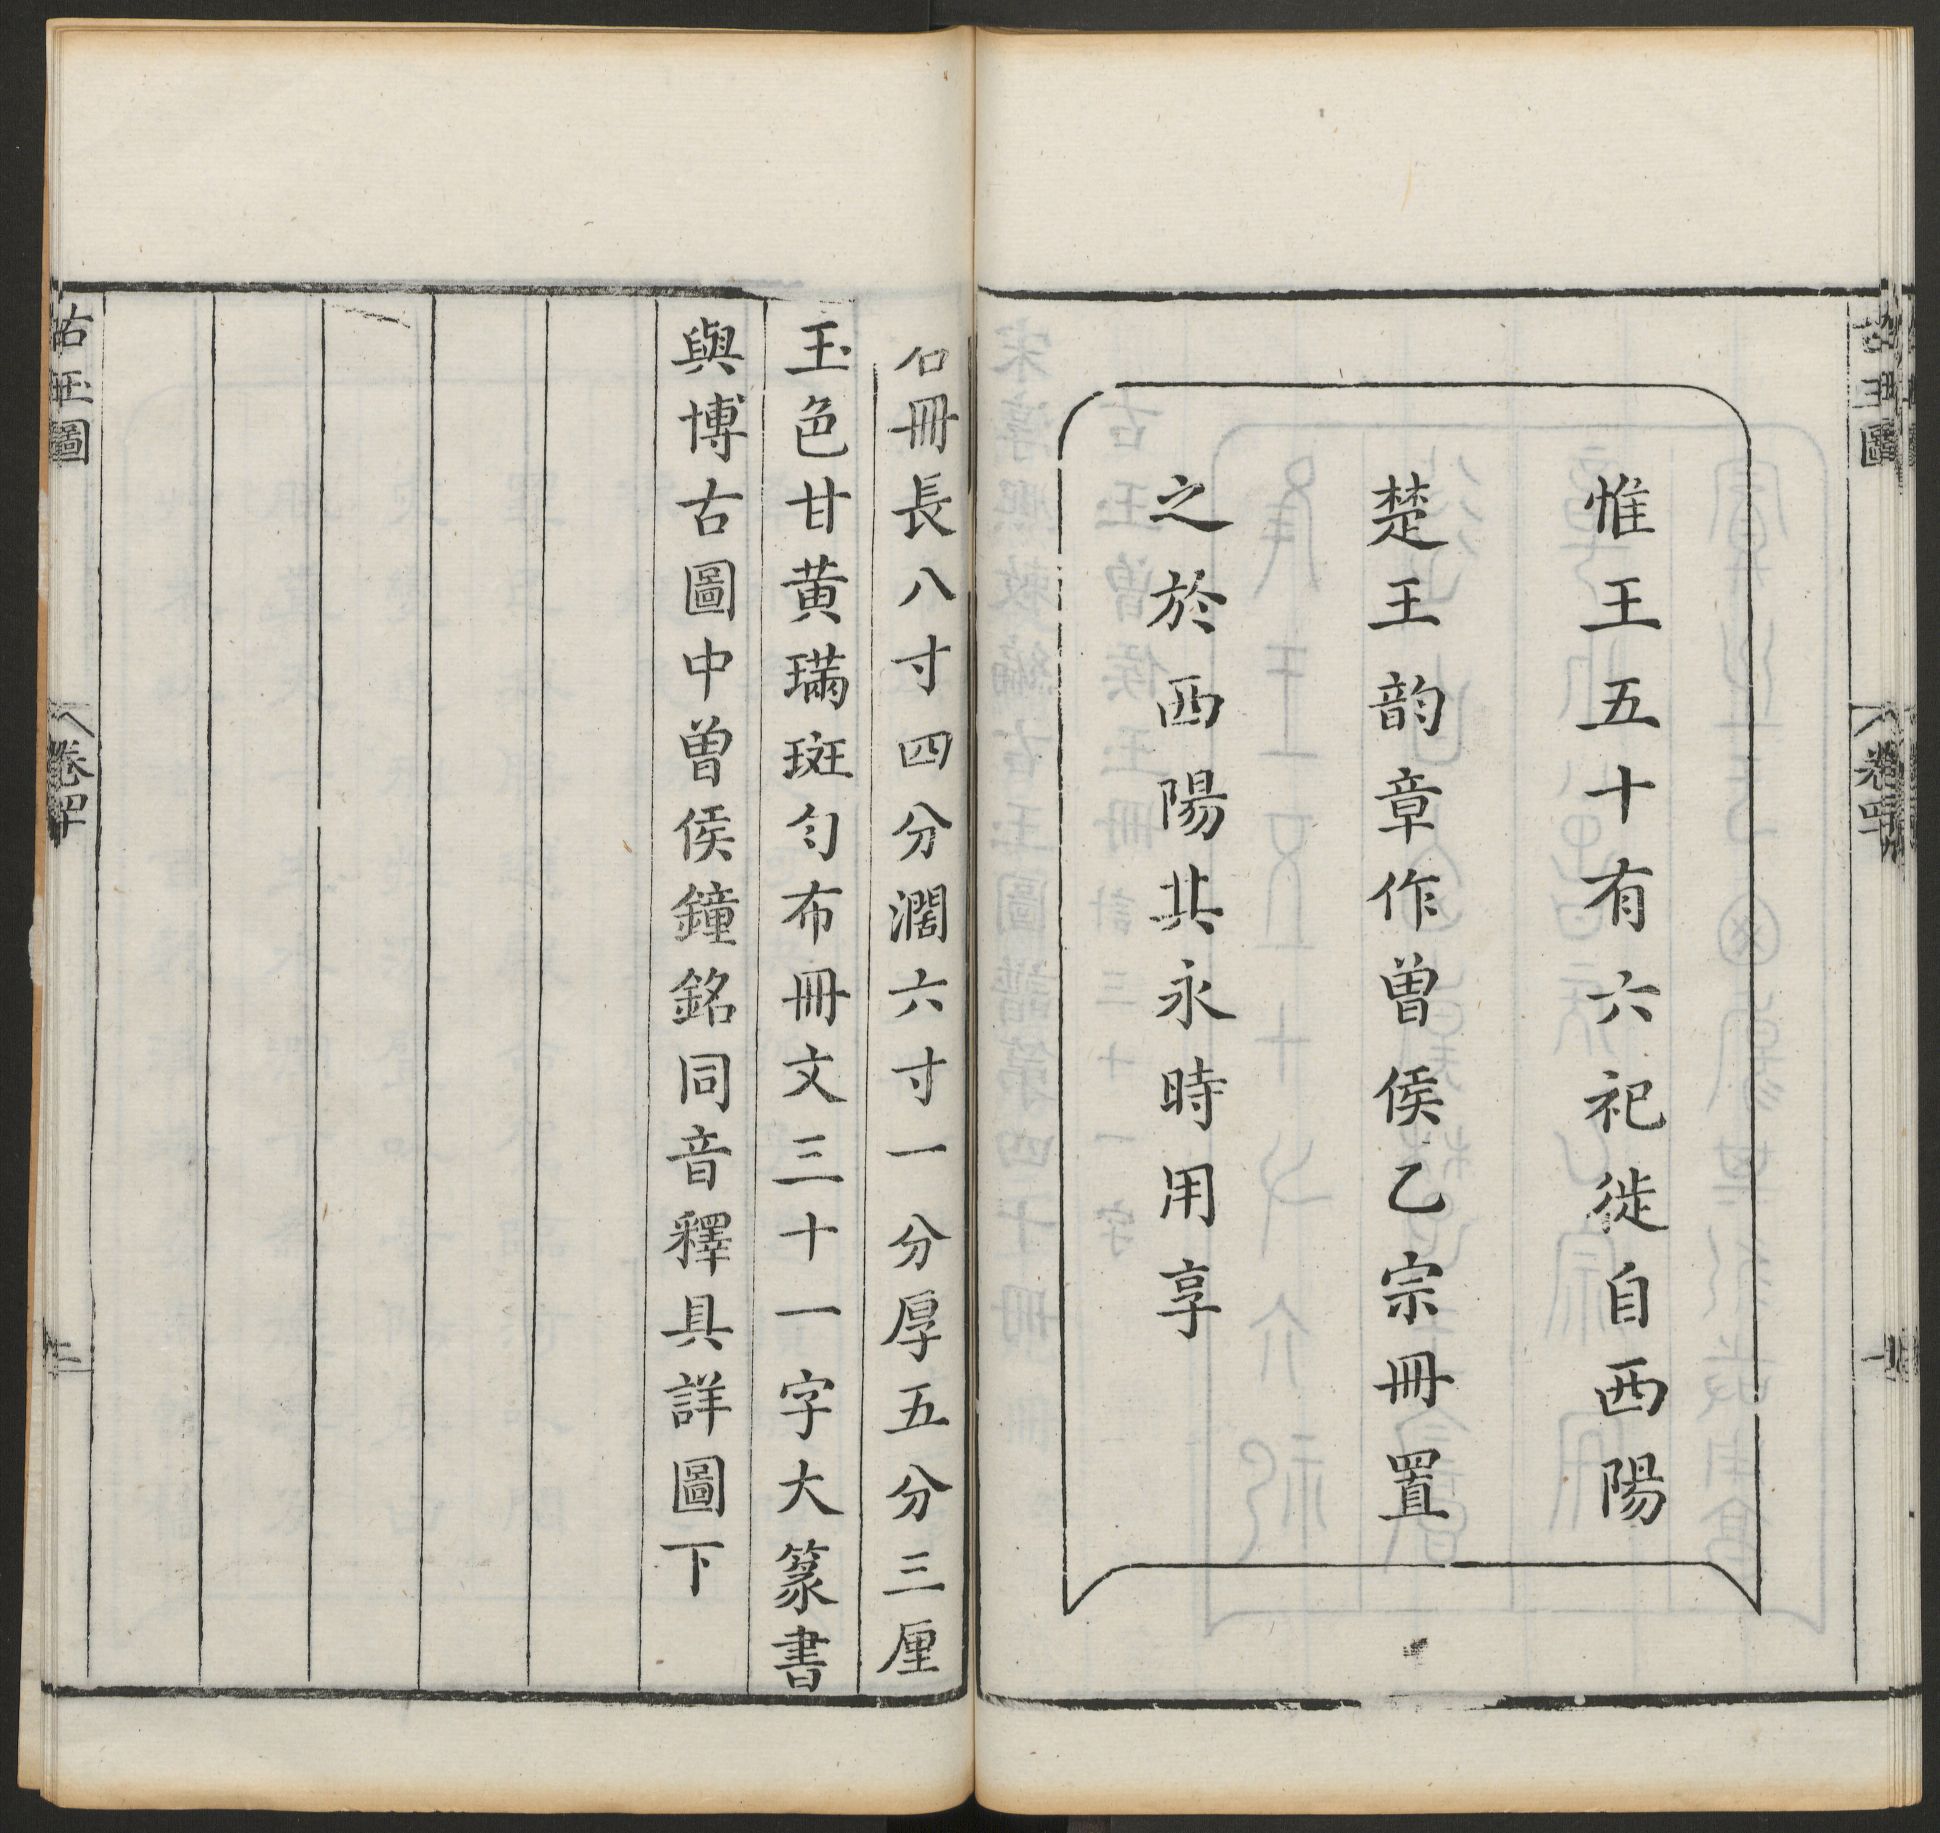 惟王五十有六祀徙自西陽
楚王韵章作曾侯乙宗冊置
之於西陽其永時用享
冊長八寸四分濶六寸一分厚五分三厘
玉色甘黄璊斑勻布冊文三十一字大篆書
與博古圖中曾侯鐘銘同音釋具詳圖下
古玉圖
卷四